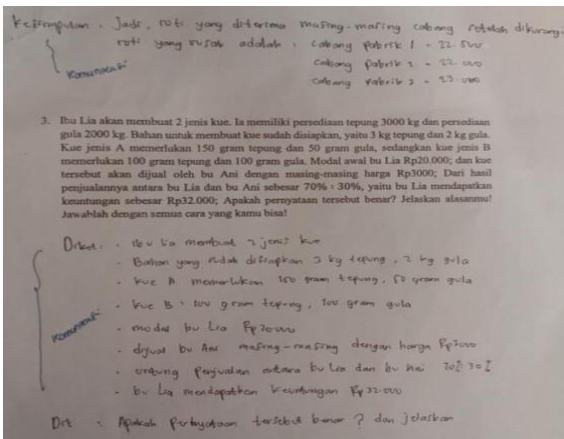 Kesimpulan : Jadi, roti yang diterima masing-masing cabang setelah dikurangi
roti yang rusak adalah : cabang pabrik 1 = 22.500
Cabang Pabrik 2 = 22.000
Cabang Pabrik 3 = 23.000
Komunikasi
3. Ibu Lia akan membuat 2 jenis kue. Ia memiliki persediaan tepung 3000 kg dan persediaan
gula 2000 kg. Bahan untuk membuat kue sudah disiapkan, yaitu 3 kg tepung dan 2 kg gula.
Kue jenis A memerlukan 150 gram tepung dan 50 gram gula, sedangkan kue jenis B
memerlukan 100 gram tepung dan 100 gram gula. Modal awal bu Lia Rp20.000; dan kue
tersebut akan dijual oleh bu Ani dengan masing-masing harga Rp3000; Dari hasil
penjualannya antara bu Lia dan bu Ani sebesar 70% : 30%, yaitu bu Lia mendapatkan
keuntungan sebesar Rp32.000; Apakah pernyataan tersebut benar? Jelaskan alasanmu!
Jawablah dengan semua cara yang kamu bisa!
Diket : - Ibu Lia membuat 2 jenis kue
- Bahan yang sudah disiapkan 3 kg tepung, 2 kg gula
- kue A memerlukan 150 gram tepung, 50 gram gula
- kue B : 100 gram tepung, 100 gram gula
- modal bu Lia Rp20000
- dijual bu Ani masing-masing dengan harga Rp3000
- untung penjualan antara bu Lia dan bu Ani 70% 30%
- bu Lia mendapatkan keuntungan Rp 32.000
Komunikasi
Dit : Apakah pertanyataan tersebut benar ? dan jelaskan